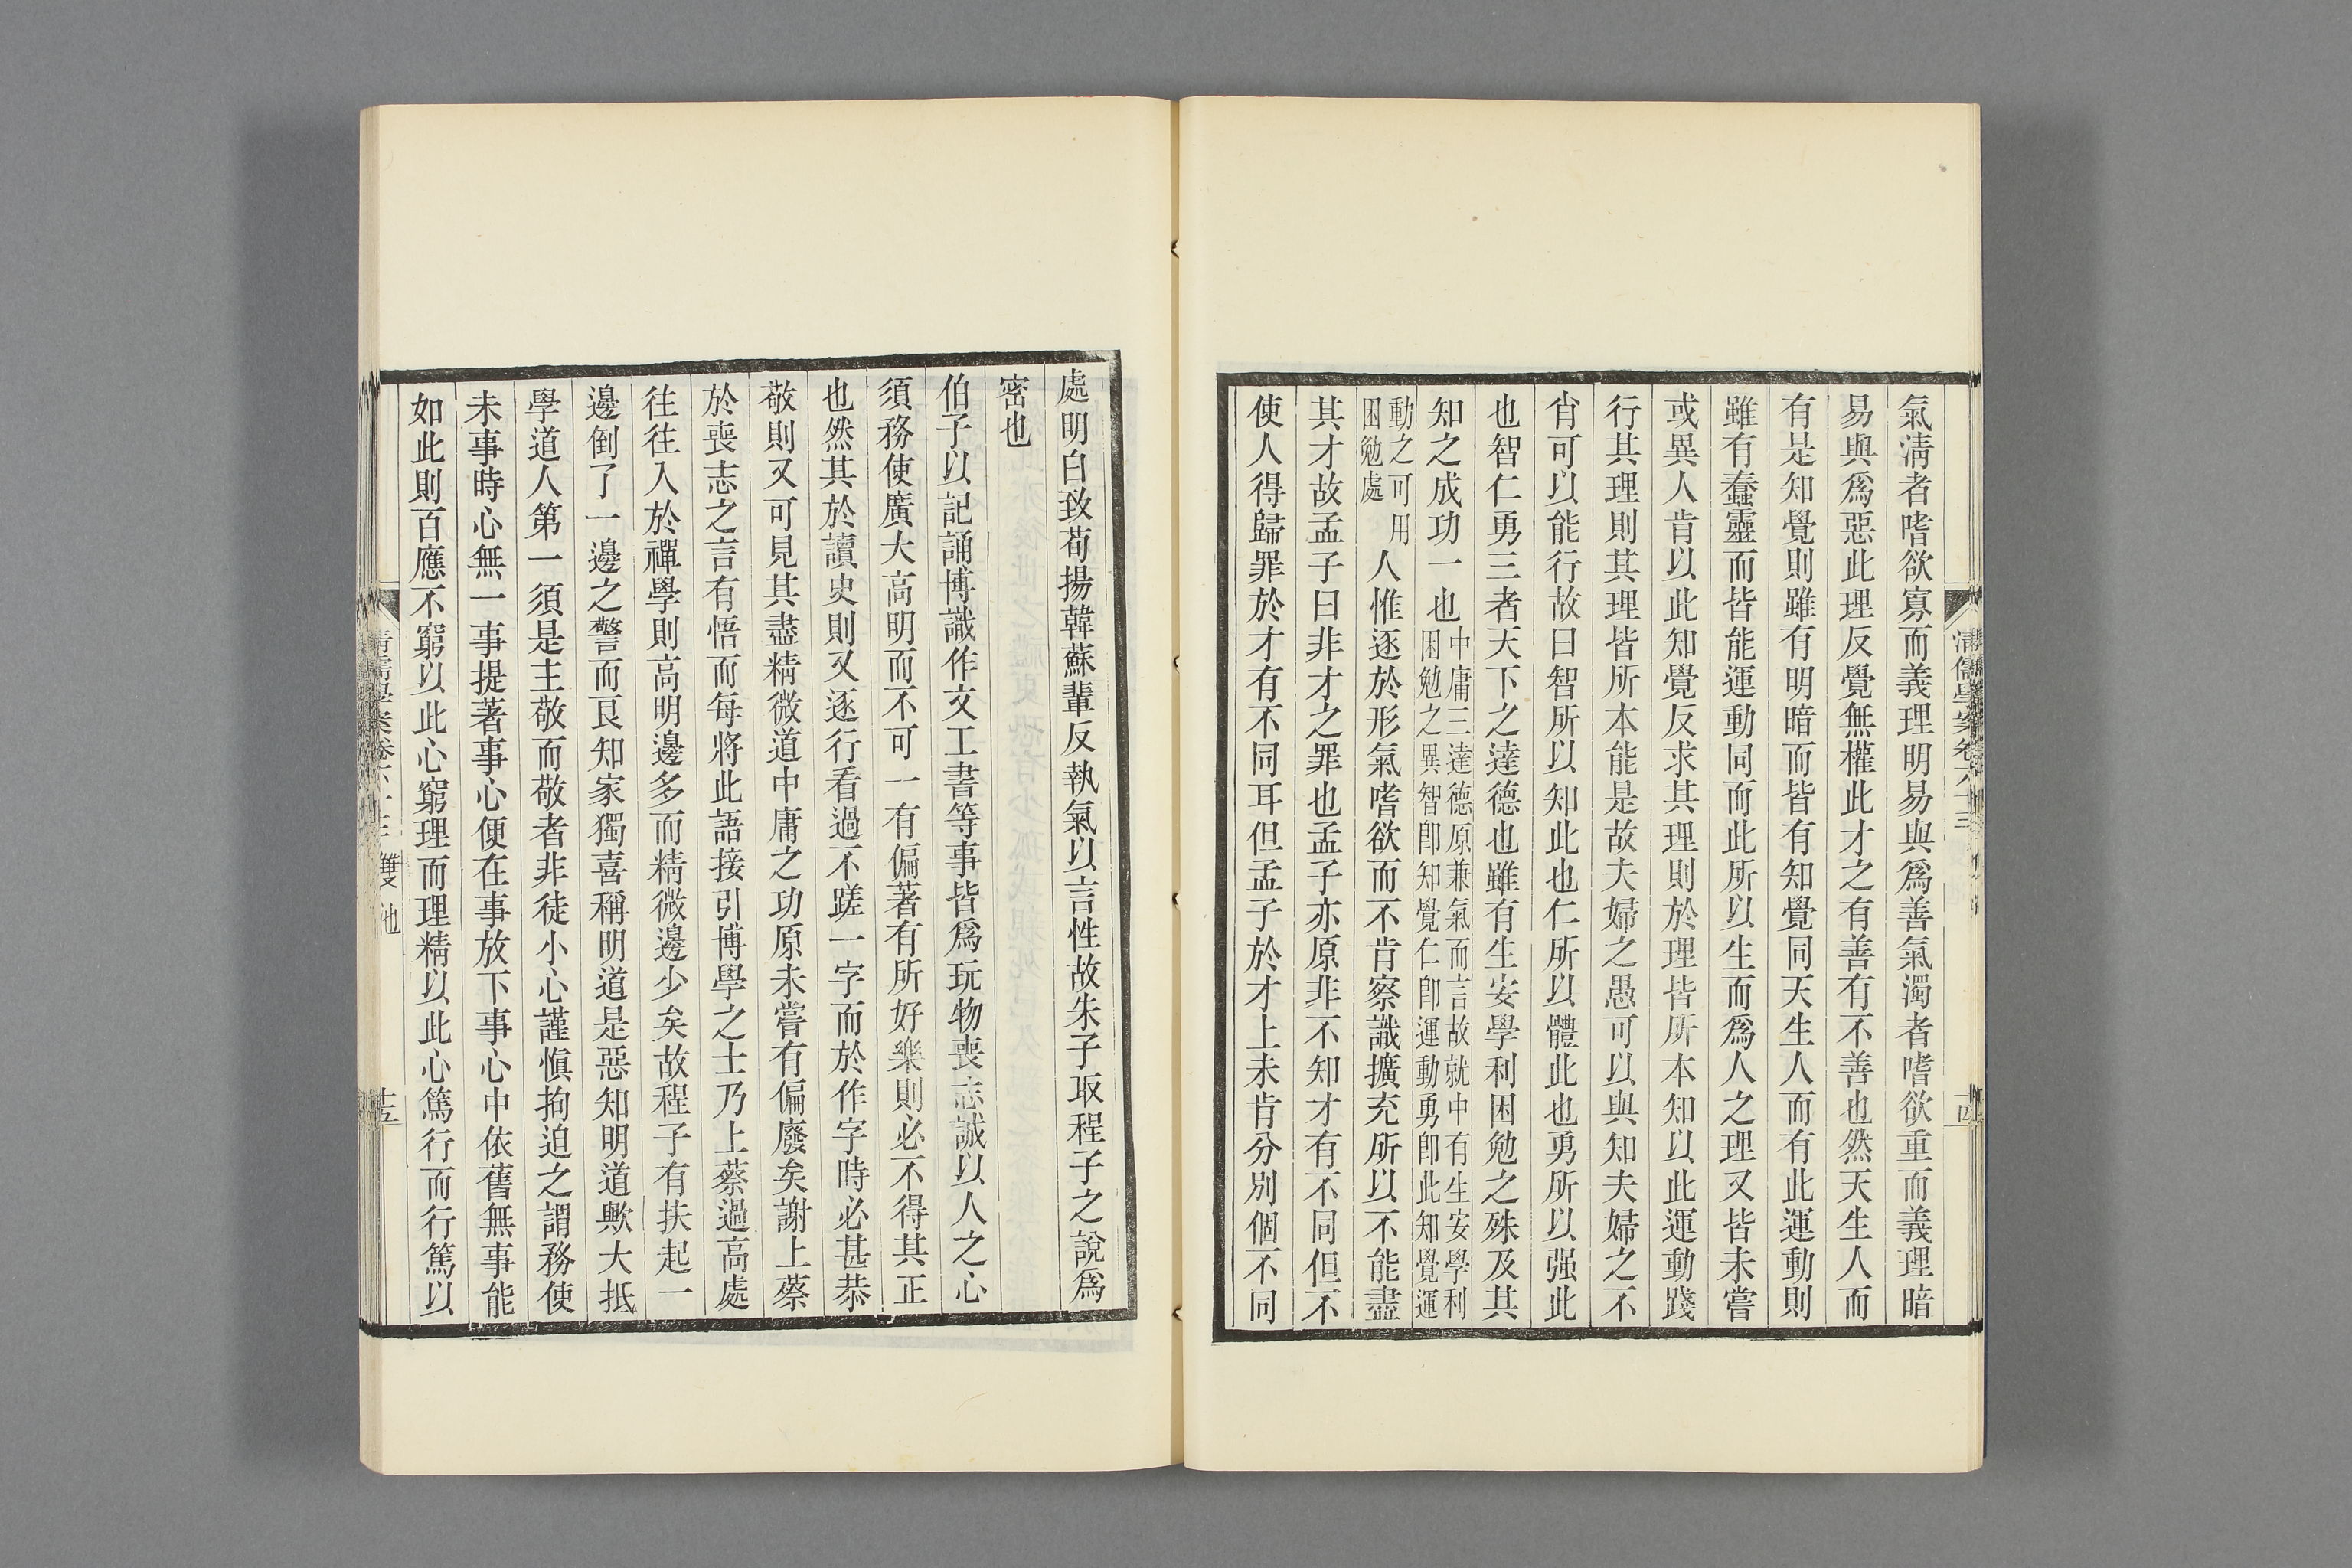 氣淸者嗜欲寡而義理明易與爲善氣濁者嗜欲重而義理暗
易與爲惡此理反覺無權此才之有善有不善也然天生人而
有是知覺則雖有明暗而皆有知覺同天生人而有此運動則
雖有蠢靈而皆能運動同而此所以生而爲人之理又皆未嘗
或異人肯以此知覺反求其理則於理皆所本知以此運動踐
行其理則其理皆所本能是故夫婦之愚可以與知夫婦之不
肖可以能行故曰智所以知此也仁所以體此也勇所以强此
也智仁勇三者天下之達德也雖有生安學利困勉之殊及其
知之成功一也
中庸三達德原兼氣而言故就中有生安學利
困勉之異智卽知覺仁卽運動勇卽此知覺運
動之可用
困勉處
人惟逐於形氣嗜欲而不肯察識擴充所以不能盡
其才故孟子曰非才之罪也孟子亦原非不知才有不同但不
使人得歸罪於才有不同耳但孟子於才上未肯分別個不同
清儒學案卷六十三
十四
處明白致荀揚韓蘇輩反執氣以言性故朱子取程子之說爲
密也
伯子以記誦博識作文工書等事皆爲玩物喪志誠以人之心
須務使廣大高明而不可一有偏著有所好樂則必不得其正
也然其於讀史則又逐行看過不蹉一字而於作字時必甚恭
敬則又可見其盡精微道中庸之功原未嘗有偏廢矣謝上蔡
於喪志之言有悟而每將此語接引博學之士乃上蔡過高處
往往入於禪學則高明邊多而精微邊少矣故程子有扶起一
邊倒了一邊之警而艮知家獨喜稱明道是惡知明道歟大抵
學道人第一須是主敬而敬者非徒小心謹愼拘迫之謂務使
未事時心無一事提著事心便在事放下事心中依舊無事能
如此則百應不窮以此心窮理而理精以此心篤行而行篤以
清儒學案卷六十三 雙池
十五